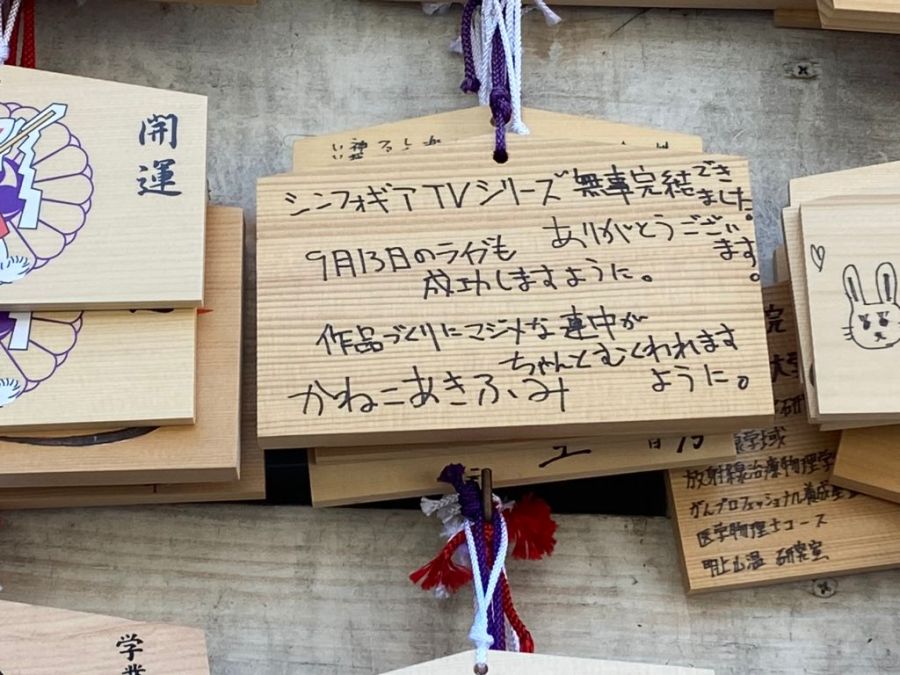 開運
シンフォギアTVシリーズ無事完結できました。
ありがとうございます。
9月13日のライブも
成功しますように。
作品づくりにマジメな連中が
ちゃんとむくわれます
ように。
かねこあきふみ
放射線治療物理学
がんプロフェッショナル養成
医学物理士コース
研究室
学業